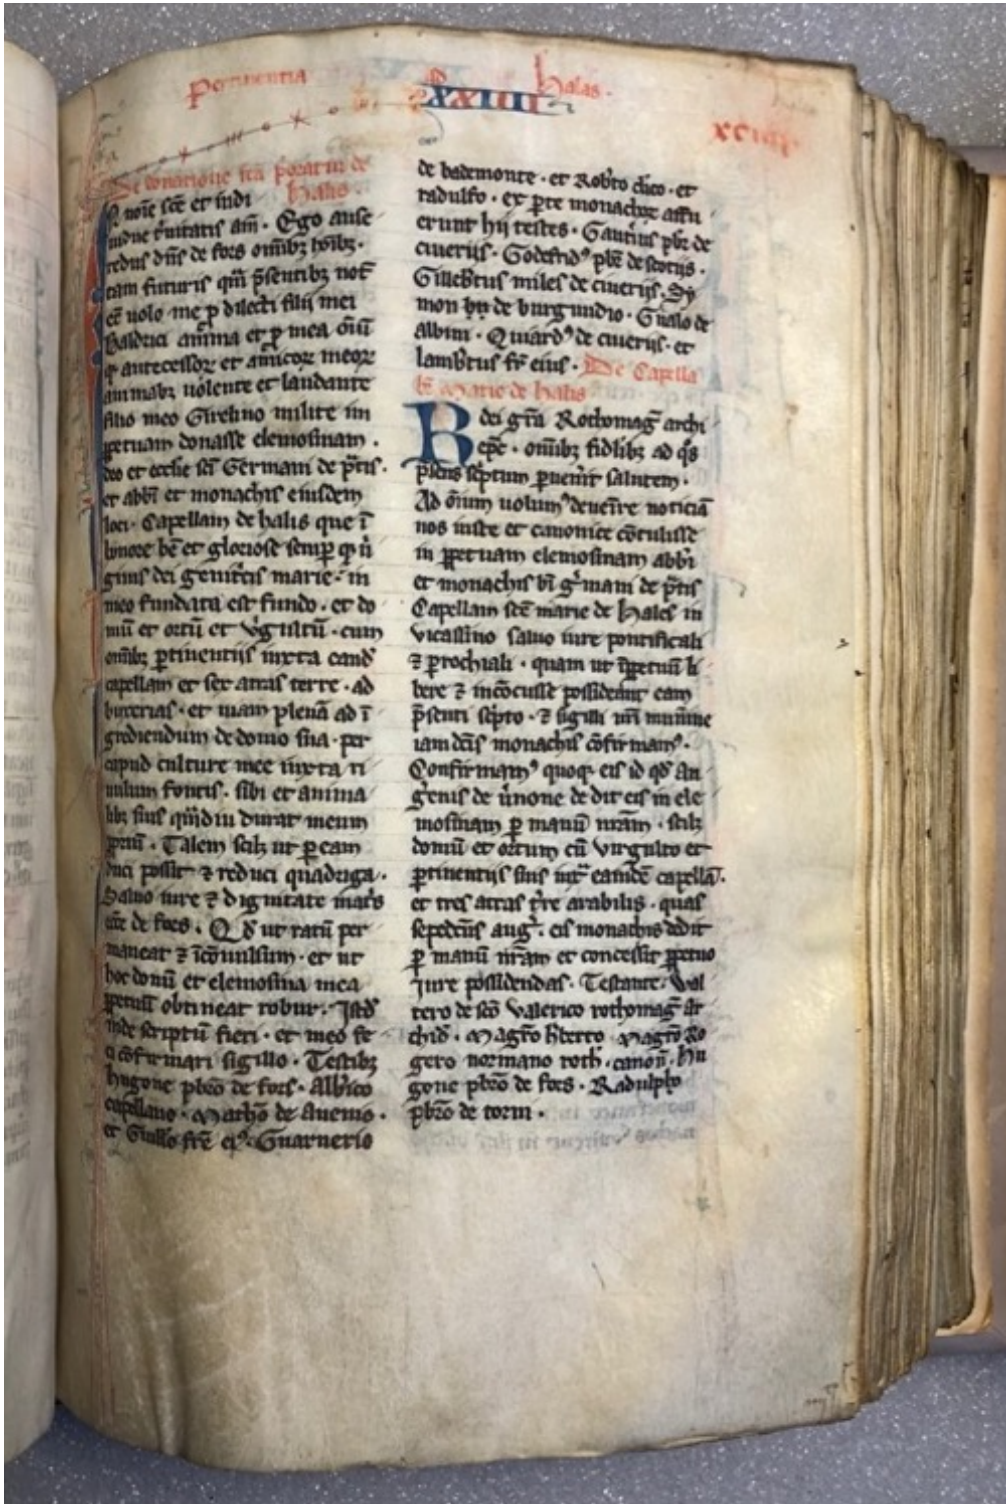 Pertinentia ad halas.
XXIIII
xciiii
De donatione
halis.
N noīe sc̄e et indi
uidue t'nitatis am̄. Ego anse
redus dn̄s de fors om̄ibȝ hoībȝ.
tam futuris qm̄ p̄sentibȝ not̄
eē uolo me p dilecti filij mei
Baldrici anima et p mea om̄iū
qȝ antecessoꝝ et amicoꝝ meoꝝ
animabȝ uolente et laudante
filio meo Girelmo milite im
ꝑpetuam donasse elemosinam.
deo et ecclie sc̄i Germani de p̄tis.
et abb̄i et monachis eiusdem
loci. Capellam de halis que ī
honore be͞ et gloriose semꝑ qȝ ui
ginis dei genit'cis marie. in
meo fundata est fundo. et do
mū et ortū et v'gultū. cum
om̄ibȝ ꝑtinentijs iuxta eand̄
capellam et sex acras terre. ad
bucerias. et uiam plenā ad ī
grediendum de domo sua. per
capud culture mee iuxta ri
uulum fontis. sibi et anima
libȝ suis qm̄diu durat meum
ꝓpriū. Talem scilȝ ut ꝑ eam
duci possit ⁊ reduci quadriga.
Saluo iure ⁊ dignitate mat's
ecc̄e de fors. Qd̄ ut ratū per
maneat ⁊ īcōuulsum. et ut
hoc donū et elemosina mea
ꝑpetuū obtineat robur. Istd̄
inde scriptū fieri. et meo fe
ci cōfirmari sigillo. Testibȝ
hugone pbr̄o de fors. Alb'ico
capellano. Math̄o de Auenis.
et Guill̄o fr̄e eiꝰ. Guarnerio
de bademonte. et Rob'to cl'ico. et
radulfo. ex ꝑte monachoꝝ affu
erunt hij testes. Gaut'ius pbr̄ de
ciuerijs. Godefridꝰ pbr̄ de scotijs.
Gilleb'tus miles de ciuerijs. Sy
mon hȳ de burgundio. Gualo de
albini. Quiardꝰ de ciuerijs. et
lamb'tus fr̄ eius. De Capella
b̄e Marie de halis
R dei gr̄a Rothomaḡ archi
ep̄c. om̄ibȝ fidlibȝ ad q̄s
p̄sens sc'ptum ꝑuen'it salutem.
Ad om̄ium uolumꝰ deuenire noticiā
nos iuste et canonice cōtulisse
in ꝑpetuam elemosinam abb̄i
et monachis b̄i g'mani de p̄tis
Capellam sc̄e marie de hales in
vicassino saluo iure pontificali
⁊ ꝑrochiali. quam ut ī ꝑpetuū li
bere ⁊ incōcusse possideant eam
p̄senti sc'pto. ⁊ sigilli nr̄i munīne
iam dc̄is monachis cōfirmamꝰ.
Confirmamꝰ quoqȝ eis id qd̄ an
g'enis de u'none dedit eis in ele
mosinam ꝑ manū nr̄am. scilȝ
domū et ortum cū virgulto et
ꝑtinentijs suis iux̄ eandē capellā.
et tres acras t're arabilis. quas
sepedc̄us aug'. eis monachis dedit
ꝑ manū nr̄am et concessit ꝑpetuo
jure possidendas. Testante. Wal
tero de sc̄o Valerico rothomaḡ ar
chid̄. Magr̄o h'b'erto. Magr̄o Ro
gero normano roth̄. canon̄. hu
gone pbr̄o de fors. Radulpho
pbr̄o de torni.